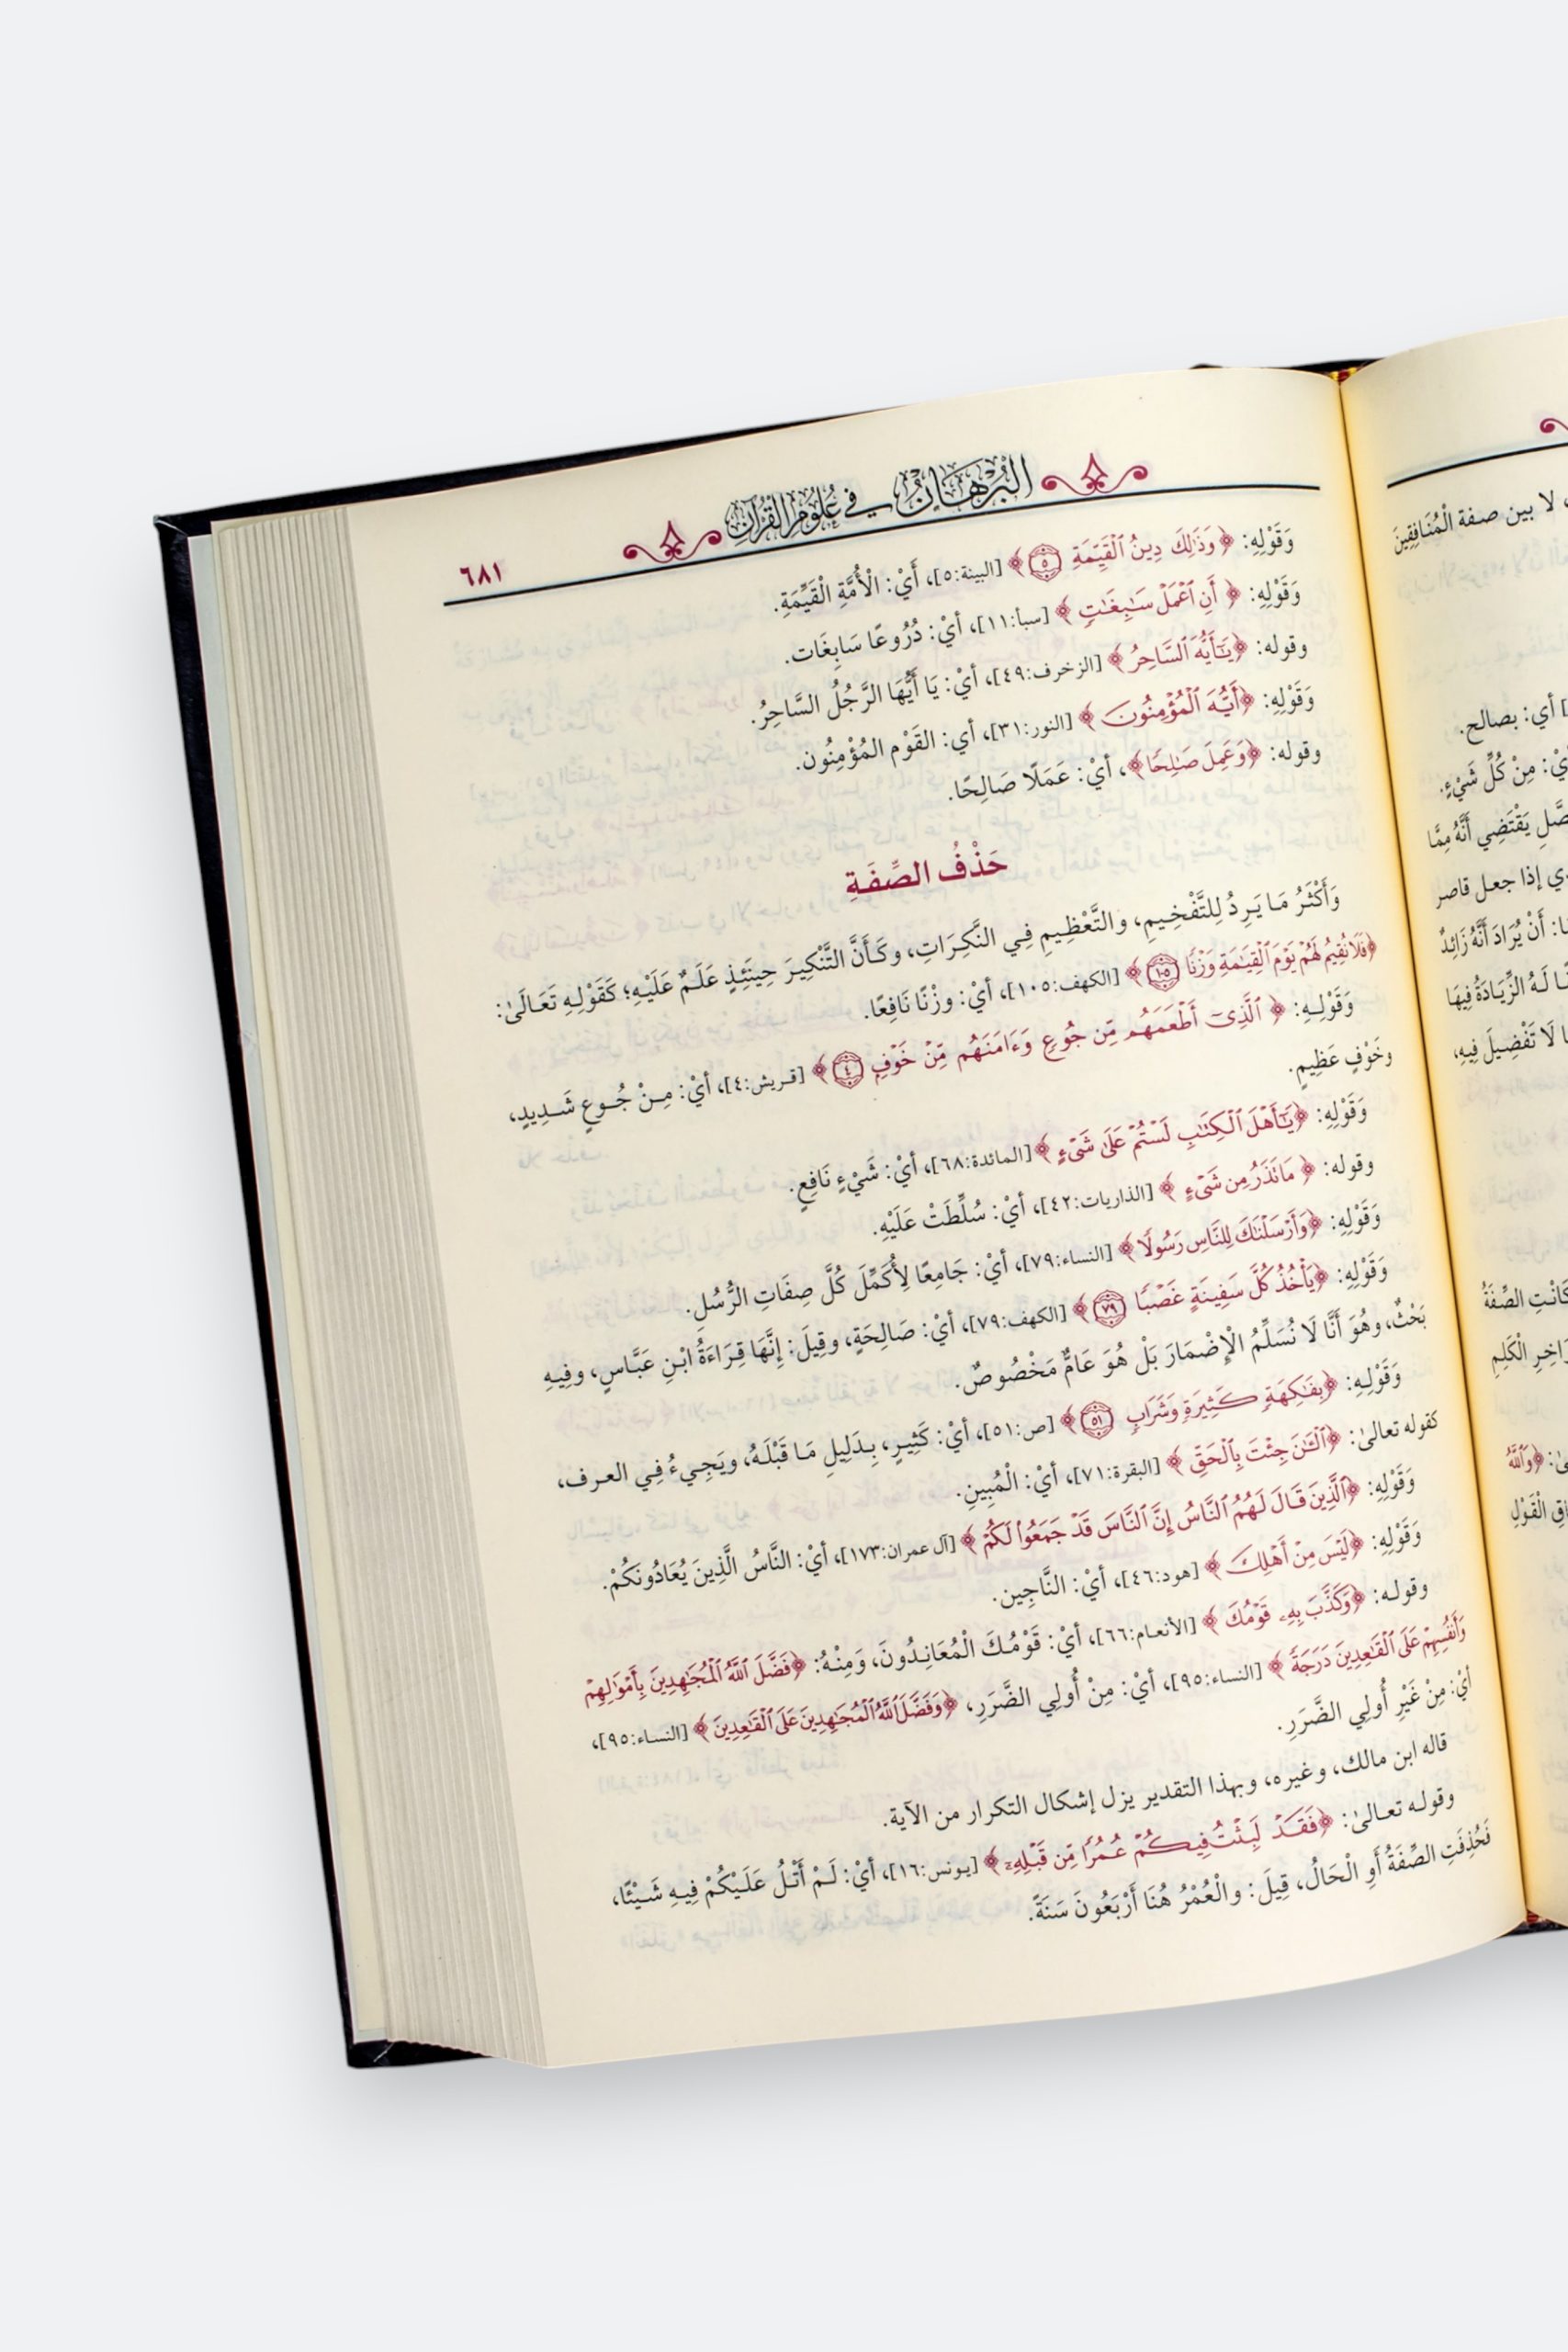 البُرْهَانُ فِي عُلُومِ القُرْآنِ
٦٨١
وَقَوْلِهِ: ﴿وَذَٰلِكَ دِينُ ٱلْقَيِّمَةِ ٥﴾ [البينة:٥]، أَيْ: الْأُمَّةِ الْقَيِّمَةِ.
وَقَوْلِهِ: ﴿أَنِ ٱعْمَلْ سَٰبِغَٰتٍ﴾ [سبأ:١١]، أيْ: دُرُوعًا سَابِغَات.
وقوله: ﴿يَٰٓأَيُّهَ ٱلسَّاحِرُ﴾ [الزخرف:٤٩]، أيْ: يَا أَيُّهَا الرَّجُلُ السَّاحِرُ.
وَقَوْلِهِ: ﴿أَيُّهَ ٱلْمُؤْمِنُونَ﴾ [النور:٣١]، أي: القَوْم المُؤْمِنُون.
وقوله: ﴿وَعَمِلَ صَٰلِحًا﴾، أيْ: عَمَلًا صَالِحًا.
حَذْفُ الصِّفَةِ
وَأَكْثَرُ مَا يَرِدُ لِلتَّفْخِيمِ، والتَّعْظِيمِ فِي النَّكِرَاتِ، وكَأَنَّ التَّنْكِيرَ حِينَئِذٍ عَلَمٌ عَلَيْهِ؛ كَقَوْلِهِ تَعَالَىٰ:
﴿فَلَا نُقِيمُ لَهُمْ يَوْمَ ٱلْقِيَٰمَةِ وَزْنًا ١٠٥﴾ [الكهف:١٠٥]، أيْ: وزْنًا نَافِعًا.
وَقَوْلِهِ: ﴿ٱلَّذِىٓ أَطْعَمَهُم مِّن جُوعٍ وَءَامَنَهُم مِّنْ خَوْفٍ ٤﴾ [قريش:٤]، أيْ: مِنْ جُوعٍ شَدِيدٍ،
وخَوْفٍ عَظِيمٍ.
وَقَوْلِهِ: ﴿يَٰٓأَهْلَ ٱلْكِتَٰبِ لَسْتُمْ عَلَىٰ شَىْءٍ﴾ [المائدة:٦٨]، أيْ: شَيْءٍ نَافِعٍ.
وقوله: ﴿مَا تَذَرُ مِن شَىْءٍ﴾ [الذاريات:٤٢]، أيْ: سُلِّطَتْ عَلَيْهِ.
وَقَوْلِهِ: ﴿وَأَرْسَلْنَٰكَ لِلنَّاسِ رَسُولًا﴾ [النساء:٧٩]، أيْ: جَامِعًا لِأَكْمَلِ كُلَّ صِفَاتِ الرُّسُلِ.
وَقَوْلِهِ: ﴿يَأْخُذُ كُلَّ سَفِينَةٍ غَصْبًا ٧٩﴾ [الكهف:٧٩]، أيْ: صَالِحَةٍ، وقِيلَ: إِنَّهَا قِرَاءَةُ ابْنِ عَبَّاسٍ، وفِيهِ
بَحْثٌ، وهُوَ أَنَّا لَا نُسَلِّمُ الْإِضْمَارَ بَلْ هُوَ عَامٌّ مَخْصُوصٌ.
وَقَوْلِهِ: ﴿بِفَٰكِهَةٍ كَثِيرَةٍ وَشَرَابٍ ٥١﴾ [ص:٥١]، أيْ: كَثِيرٍ، بِدَلِيلِ مَا قَبْلَهُ، ويَجِيءُ فِي العرف،
كقوله تعالىٰ: ﴿ٱلْـَٰٔنَ جِئْتَ بِٱلْحَقِّ﴾ [البقرة:٧١]، أيْ: الْمُبِينِ.
وَقَوْلِهِ: ﴿ٱلَّذِينَ قَالَ لَهُمُ ٱلنَّاسُ إِنَّ ٱلنَّاسَ قَدْ جَمَعُوا۟ لَكُمْ﴾ [آل عمران:١٧٣]، أيْ: النَّاسُ الَّذِينَ يُعَادُونَكُمْ.
وَقَوْلِهِ: ﴿لَيْسَ مِنْ أَهْلِكَ﴾ [هود:٤٦]، أيْ: النَّاجِين.
وقوله: ﴿وَكَذَّبَ بِهِۦ قَوْمُكَ﴾ [الأنعام:٦٦]، أيْ: قَوْمُكَ الْمُعَانِدُونَ، وَمِنْهُ: ﴿فَضَّلَ ٱللَّهُ ٱلْمُجَٰهِدِينَ بِأَمْوَٰلِهِمْ
وَأَنفُسِهِمْ عَلَى ٱلْقَٰعِدِينَ دَرَجَةً﴾ [النساء:٩٥]، أيْ: مِنْ أُولِي الضَّرَرِ، ﴿وَفَضَّلَ ٱللَّهُ ٱلْمُجَٰهِدِينَ عَلَى ٱلْقَٰعِدِينَ﴾ [النساء:٩٥]،
أيْ: مِنْ غَيْرِ أُولِي الضَّرَرِ.
قاله ابن مالك، وغيره، وبهذا التقدير يزل إشكال التكرار من الآية.
وقوله تعالىٰ: ﴿فَقَدْ لَبِثْتُ فِيكُمْ عُمُرًا مِّن قَبْلِهِۦٓ﴾ [يونس:١٦]، أيْ: لَمْ أَتْلُ عَلَيْكُمْ فِيهِ شَيْئًا،
فَحُذِفَتِ الصِّفَةُ أَوِ الْحَالُ، قِيلَ: والْعُمْرُ هُنَا أَرْبَعُونَ سَنَةً.
لا بين صفة الْمُنَافِقِينَ
أي: بصالح.
مِنْ كُلِّ شَيْءٍ.
يَقْتَضِي أَنَّهُ مِمَّا
إذا جعل قاصر
أَنْ يُرَادَ أَنَّهُ زَائِدٌ
لَهُ الزِّيَادَةُ فِيهَا
لَا تَفْضِيلَ فِيهِ،
كَانْتِ الصِّفَةُ
الْكَلِمِ
﴿وَٱللَّهُ
الْقَوْلِ